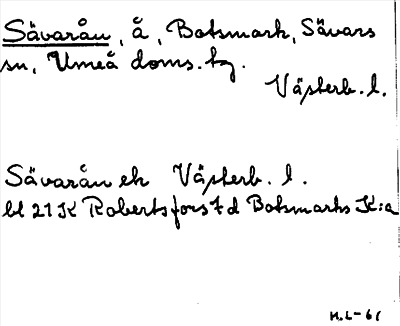 Sävarån, å, Botsmark, Sävars
sn, Umeå doms. tg.
Västerb. l.
Sävarån ek Västerb. l.
bl 21 K Robertsfors t d Botsmarks K:a
H.L-61